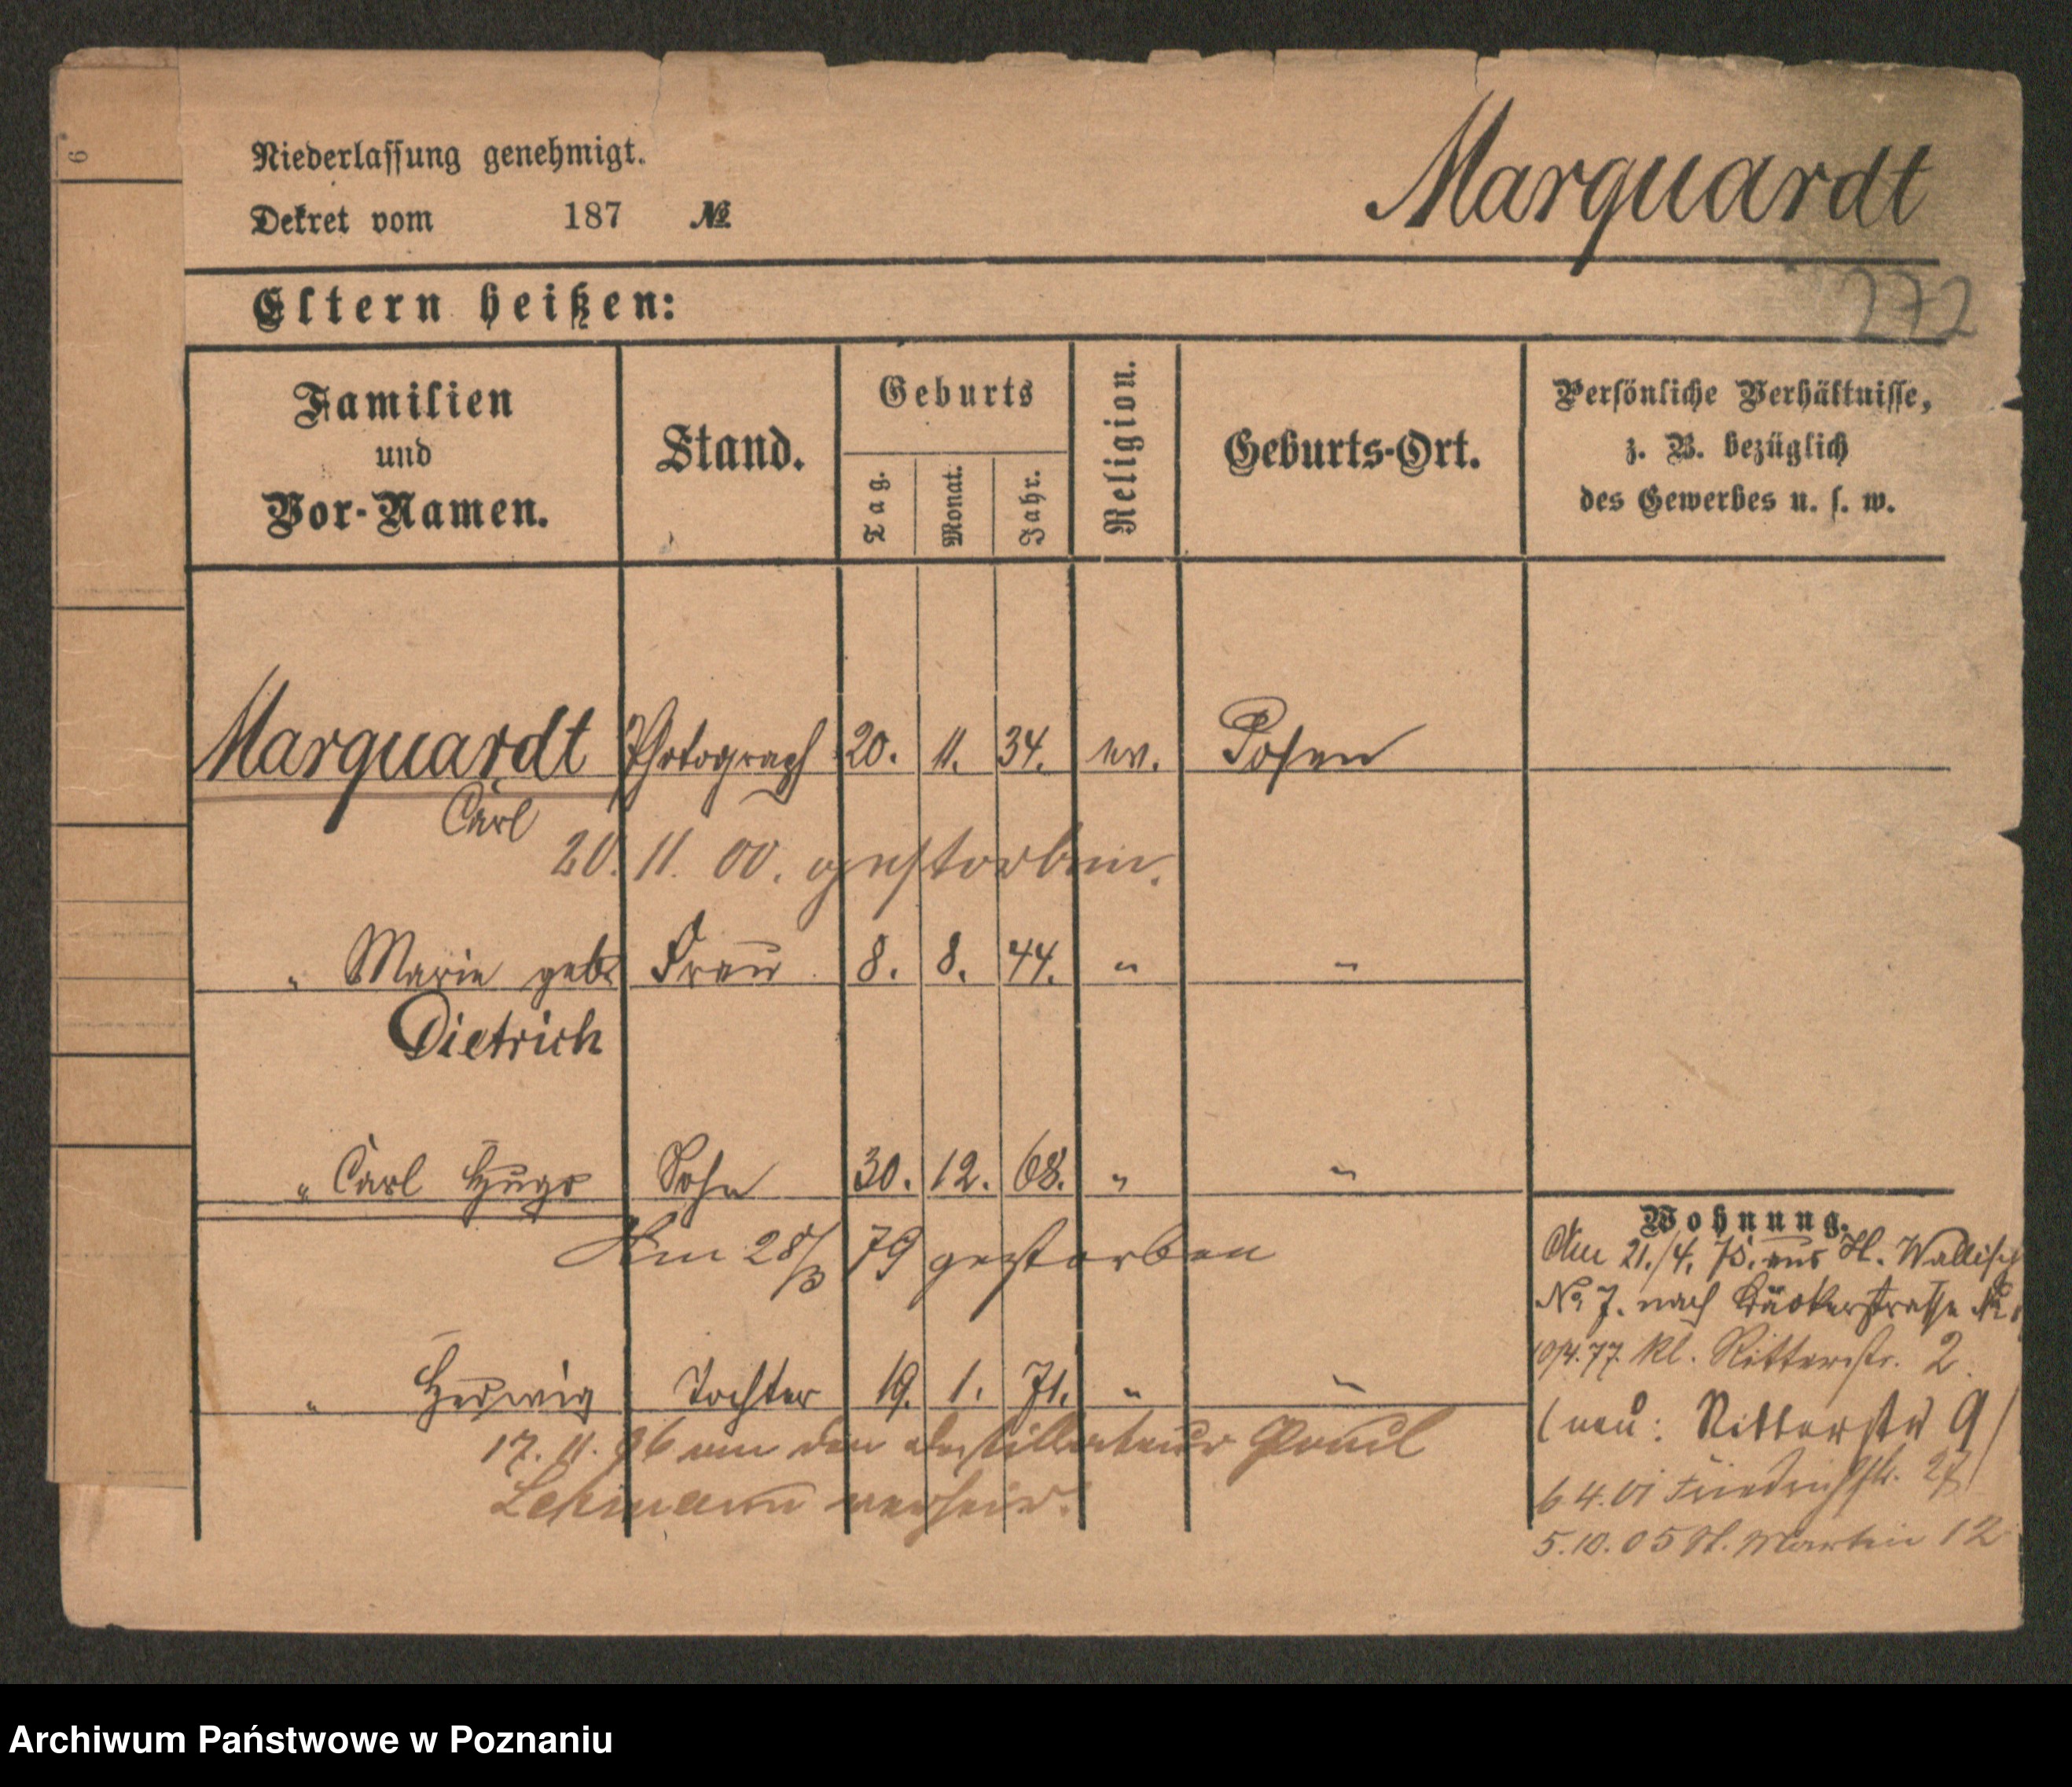 6
Niederlassung genehmigt.
Dekret vom 187 №
Marquardt
272
Eltern heißen:
Familien
und
Vor-Namen.
Stand.
Geburts
Tag.
Monat.
Jahr.
Religion.
Geburts-Ort.
Persönliche Verhältnisse,
z. B. bezüglich
des Gewerbes u. s. w.
Marquardt Photograph 20. 11. 34. ev. Posen
Carl
20. 11. 00. gestorben.
" Marie geb. Frau 8. 8. 44. " "
Dietrich
" Carl Hugo Sohn 30. 12. 68. " "
Am 28/3 79 gestorben
" Hedwig Tochter 19. 1. 71. " "
17. 11. 96 an den Destillateur Paul
Lehmann verheir.
Wohnung.
Am 21./4. 75. aus St. Wallisch
No 7. nach Bäckerstrasse No
10/4. 77. kl. Ritterstr. 2.
(neu: Ritterstr 9)
6.4.01 Friedrichstr. 27
5.10.05 St. Martin 12
Archiwum Państwowe w Poznaniu